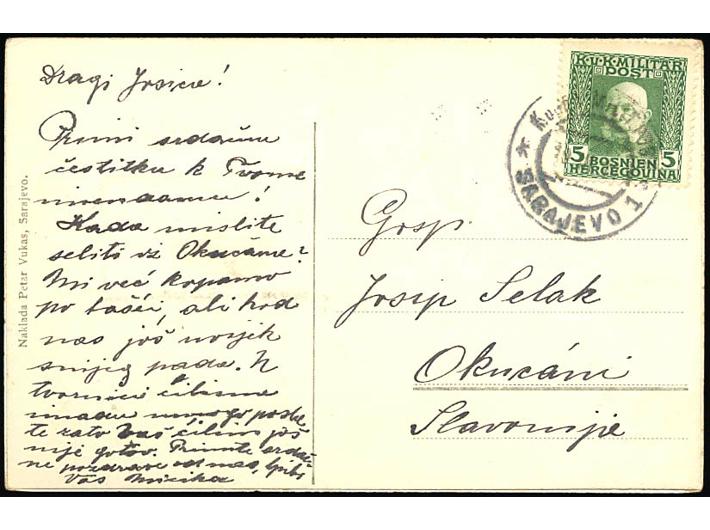 Dragi Josice!
Primi srdačne
čestitke k Tvome
imendanu!
Kada mislite
seliti iz Okučana?
Mi već kopamo
po bašći, ali kod
nas još uvijek
snijeg pada. U
tvornici ćilima
imadu mnogo posla
te zato Vaš ćilim još
nije gotov. Primite srdač-
ne pozdrave od nas, ljubi
Vas Micika
Naklada Petar Vukas, Sarajevo.
K.u.K. MILITÄR
POST
5 5
BOSNIEN
HERCEGOVINA
SARAJEVO 1
Gosp.
Josip Selak
Okučáni
Slavonije